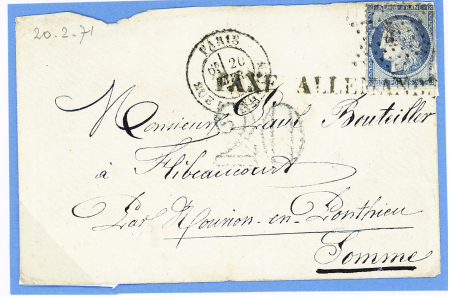 20.2.71
PARIS
20
TAXE ALLEMANDE
Monsieur Paul Bouteiller
à Flibeaucourt
Par Nouvion-en-Ponthieu
Somme